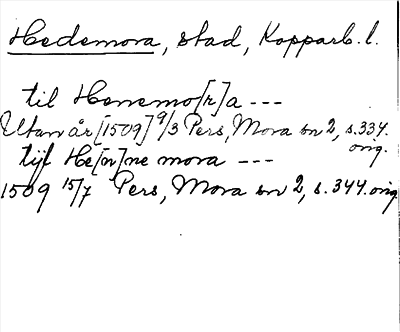 Hedemora, stad, Kopparb. l.
til Henemo[r]a ---
Utan år [1509] 9/3 Pers, Mora sn 2, s. 334.
orig.
tijl He[m]ne mora ---
1509 15/7 Pers, Mora sn 2, s. 344. orig.